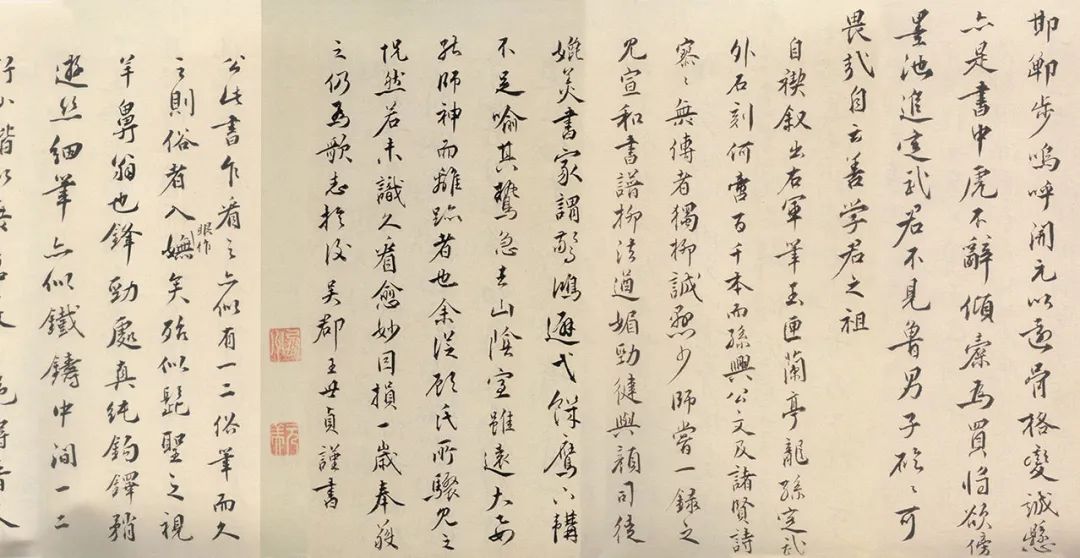 邯鄲步嗚呼開元以還骨格變誠懸
亦是書中虎不辭傾橐為買將欲傍
墨池追定武君不見魯男子硁〻可
畏哉自云善学君之祖
自禊叙出右軍筆玉匣蘭亭龍孫定武
外石刻何啻百千本而孫興公文及諸賢詩
寥〻無傳者獨柳誠懸少師嘗一錄之
見宣和書譜柳法遒媚勁健與顏司徒
媲美書家謂驚鴻避弋饑鷹下韝
不足喻其鷙急去山陰室雖遠大要
能師神而離跡者也余從顧氏所驟見之
怳然若未識久看愈妙因損一歲奉獲
之仍為歌志於後吳郡王世貞謹書
公此書乍看之亦似有一二俗筆而久
之則俗者入眼作嫵矣殆似髭聖之視
羊鼻翁也鋒勁處真純鉤鐸稍
遊丝細筆亦似鐵鑄中间一二